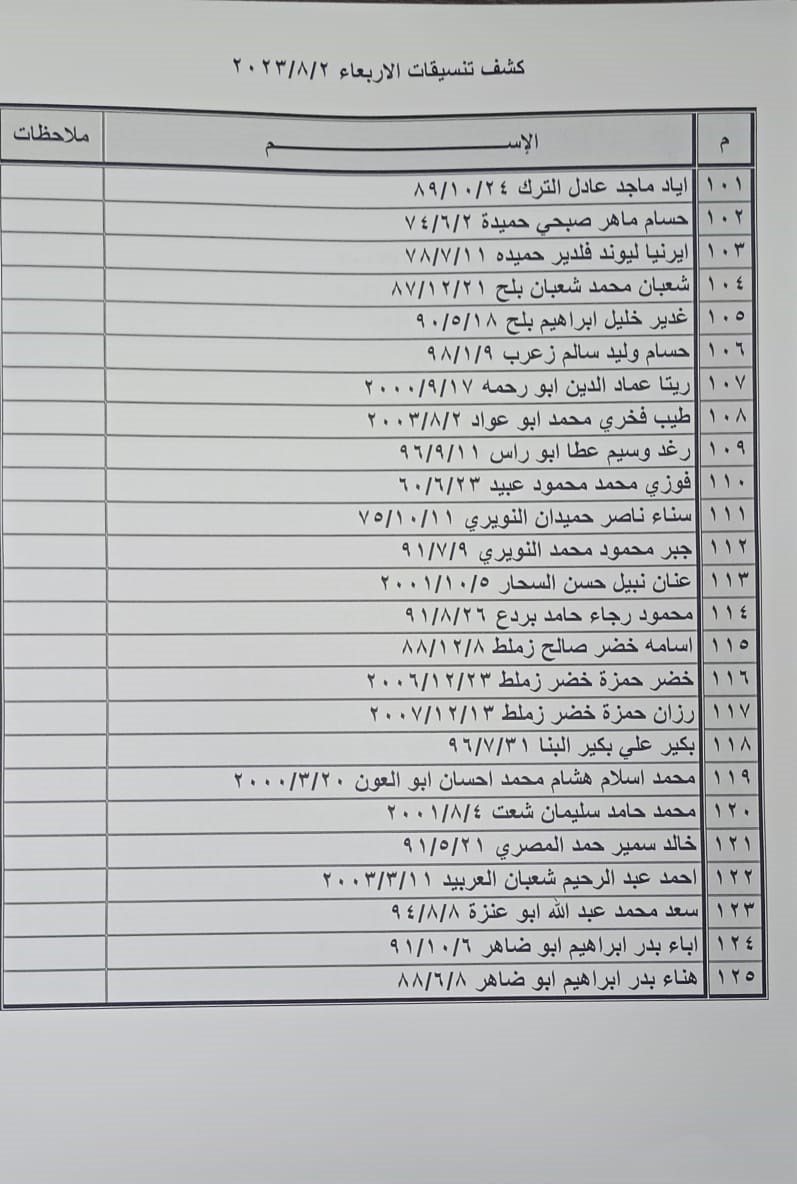 كشف تنسيقات الاربعاء ٢٠٢٣/٨/٢
م الإســـــم ملاحظات
١٠١ اياد ماجد عادل الترك ٨٩/١٠/٢٤
١٠٢ حسام ماهر صبحي حميدة ٧٤/٦/٢
١٠٣ ايرنيا ليوند فلدير حميده ٧٨/٧/١١
١٠٤ شعبان محمد شعبان بلح ٨٧/١٢/٢١
١٠٥ غدير خليل ابراهيم بلح ٩٠/٥/١٨
١٠٦ حسام وليد سالم زعرب ٩٨/١/٩
١٠٧ ريتا عماد الدين ابو رحمه ٢٠٠٠/٩/١٧
١٠٨ طيب فخري محمد ابو عواد ٢٠٠٣/٨/٢
١٠٩ رغد وسيم عطا ابو راس ٩٦/٩/١١
١١٠ فوزي محمد محمود عبيد ٦٠/٦/٢٣
١١١ سناء ناصر حميدان النويري ٧٥/١٠/١١
١١٢ جبر محمود محمد النويري ٩١/٧/٩
١١٣ عنان نبيل حسن السحار ٢٠٠١/١٠/٥
١١٤ محمود رجاء حامد بردع ٩١/٨/٢٦
١١٥ اسامه خضر صالح زملط ٨٨/١٢/٨
١١٦ خضر حمزة خضر زملط ٢٠٠٦/١٢/٢٣
١١٧ رزان حمزة خضر زملط ٢٠٠٧/١٢/١٣
١١٨ بكير علي بكير البنا ٩٦/٧/٣١
١١٩ محمد اسلام هشام محمد احسان ابو العون ٢٠٠٠/٣/٢٠
١٢٠ محمد حامد سليمان شعت ٢٠٠١/٨/٤
١٢١ خالد سمير حمد المصري ٩١/٥/٢١
١٢٢ احمد عبد الرحيم شعبان العربيد ٢٠٠٣/٣/١١
١٢٣ سعد محمد عبد الله ابو عنزة ٩٤/٨/٨
١٢٤ اباء بدر ابراهيم ابو ضاهر ٩١/١٠/٦
١٢٥ هناء بدر ابراهيم ابو ضاهر ٨٨/٦/٨